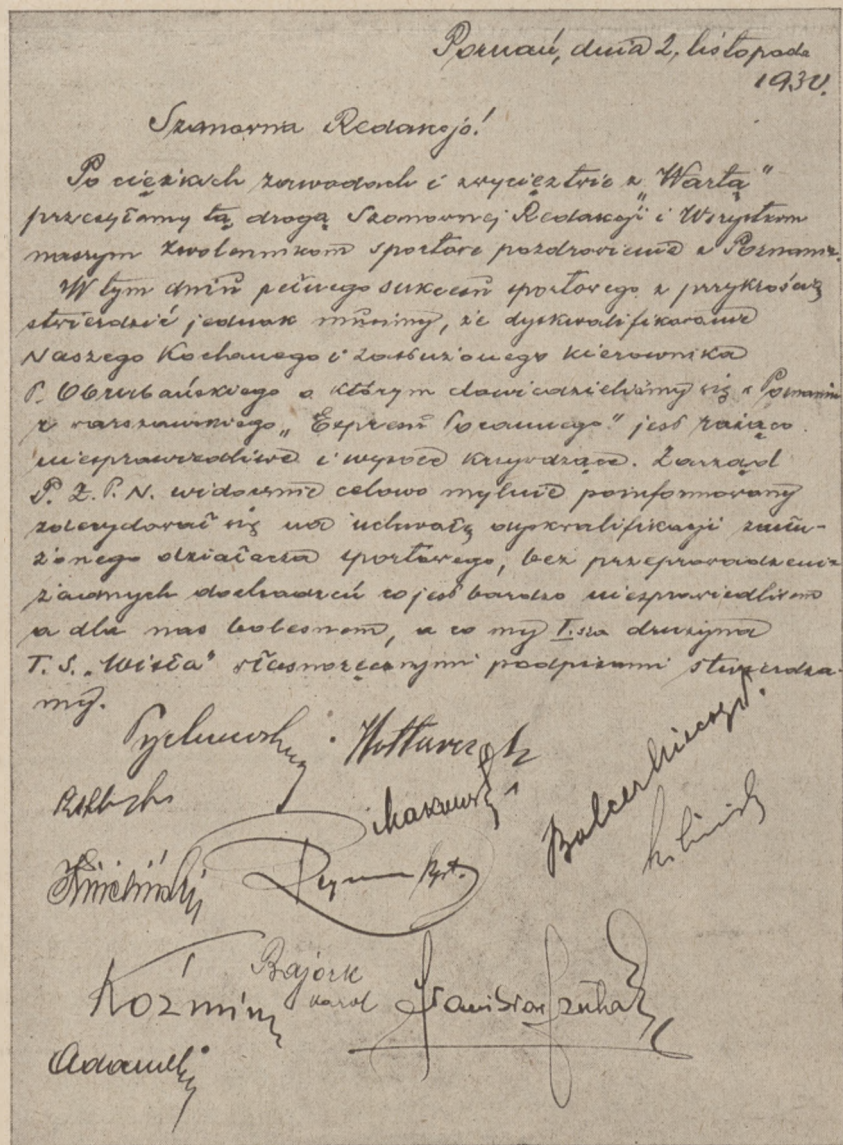 Poznań, dnia 2, listopada
1930.
Szanowna Redakcjo!
Po ciężkich zawodach i zwycięztwie z "Wartą"
przesyłamy tą drogą Szanownej Redakcji i Wszystkim
naszym zwolennikom sportowe pozdrowienia z Poznania.
W tym dniu pełnego sukcesu sportowego z przykrością
stwierdzić jednak musimy, że dyskwalifikowanie
Naszego Kochanego i zasłużonego kierownika
P. Obrubańskiego o którym dowiedzieliśmy się w Poznaniu
z warszawskiego „Expresu Porannego" jest rażąco
niesprawiedliwe i wysoce krzywdzące. Zarząd
P. Z. P. N. widocznie celowo mylnie poinformowany
zdecydował się na uchwałę dyskwalifikacji zasłu-
żonego działacza sportowego, bez przeprowadzenia
żadnych dochodzeń co jest bardzo niesprawiedliwem
a dla nas bolesnem, a co my I.sza drużyna
T. S. „Wisła" własnoręcznymi podpisami stwierdza-
my.
Pychowski Kotlarczyk
Makowski Balcer Mieczysł.
Reyman kpt.
Koźmin Bajorek Karol Stanisław Czulak
Adamek